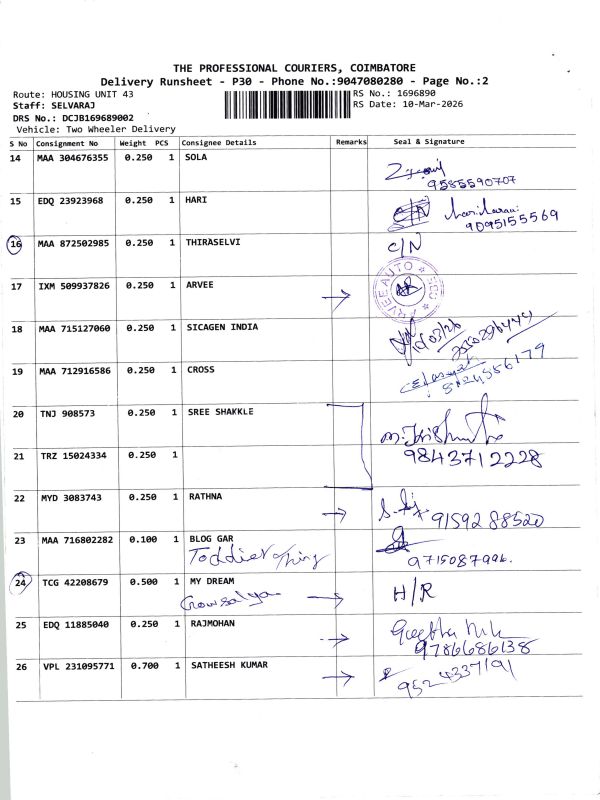 THE PROFESSIONAL COURIERS, COIMBATORE
Delivery Runsheet - P30 - Phone No.:9047080280 - Page No.:2
Route: HOUSING UNIT 43 RS No.: 1696890
Staff: SELVARAJ RS Date: 10-Mar-2026
DRS No.: DCJB169689002
Vehicle: Two Wheeler Delivery
S No Consignment No Weight PCS Consignee Details Remarks Seal & Signature
14 MAA 304676355 0.250 1 SOLA
9585590707
15 EDQ 23923968 0.250 1 HARI
C/N
9095155569
16 MAA 872502985 0.250 1 THIRASELVI C/N
17 IXM 509937826 0.250 1 ARVEE
ARVEE AUTO
18 MAA 715127060 0.250 1 SICAGEN INDIA
10/03/26
19 MAA 712916586 0.250 1 CROSS
20 TNJ 908573 0.250 1 SREE SHAKKLE
21 TRZ 15024334 0.250 1
9843712228
22 MYD 3083743 0.250 1 RATHNA
9159288520
23 MAA 716802282 0.100 1 BLOG GAR
9715087996.
24 TCG 42208679 0.500 1 MY DREAM H/R
Gowsalya
25 EDQ 11885040 0.250 1 RAJMOHAN
9786686138
26 VPL 231095771 0.700 1 SATHEESH KUMAR
9524337191